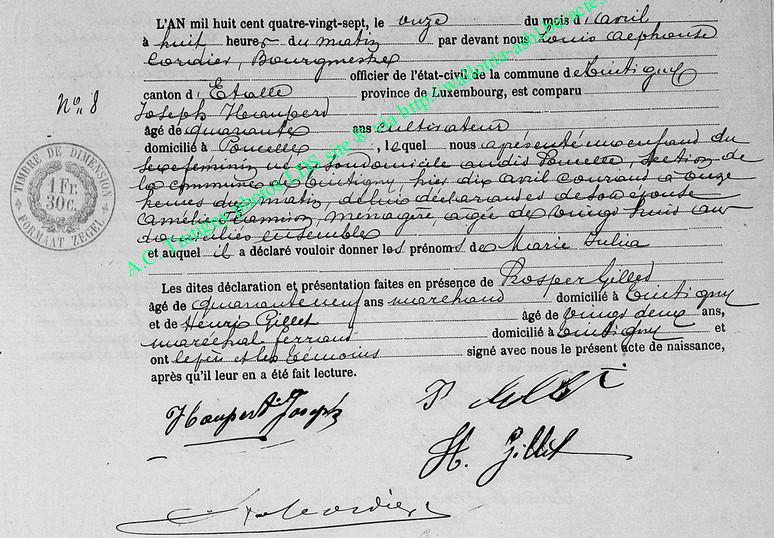 L'AN mil huit cent quatre-vingt-sept, le onze du mois d'avril
à huit heures du matin par devant nous Louis Alphonse
Cordier, Bourgmestre
officier de l'état-civil de la commune de Tintigny
canton d'Etalle province de Luxembourg, est comparu
N° 8
Joseph Haupert
âgé de quarante ans cultivateur
domicilié à Poncelle, lequel nous a présenté un enfant du
sexe féminin né à son domicile audit Poncelle, section de
la commune de Tintigny, hier dix avril courant à onze
heures du matin, de lui déclarant et de son épouse
Amélie, ménagère, âgée de vingt huit ans
domiciliés ensemble
et auquel il a déclaré vouloir donner les prénoms de Marie Julia
Les dites déclaration et présentation faites en présence de Prosper Gillet
âgé de quarante neuf ans marchand domicilié à Tintigny
et de Henri Gillet âgé de vingt deux ans,
maréchal ferrant domicilié à Tintigny et
ont le père et les témoins signé avec nous le présent acte de naissance,
après qu'il leur en a été fait lecture.
Haupert Joseph
P Gillet
H. Gillet
Cordier
TIMBRE DE DIMENSION
1 Fr.
30 c.
FORMAAT ZEGEL
A.C. Tintigny photos LDS site & via http://wallonia-asbl.be/actes